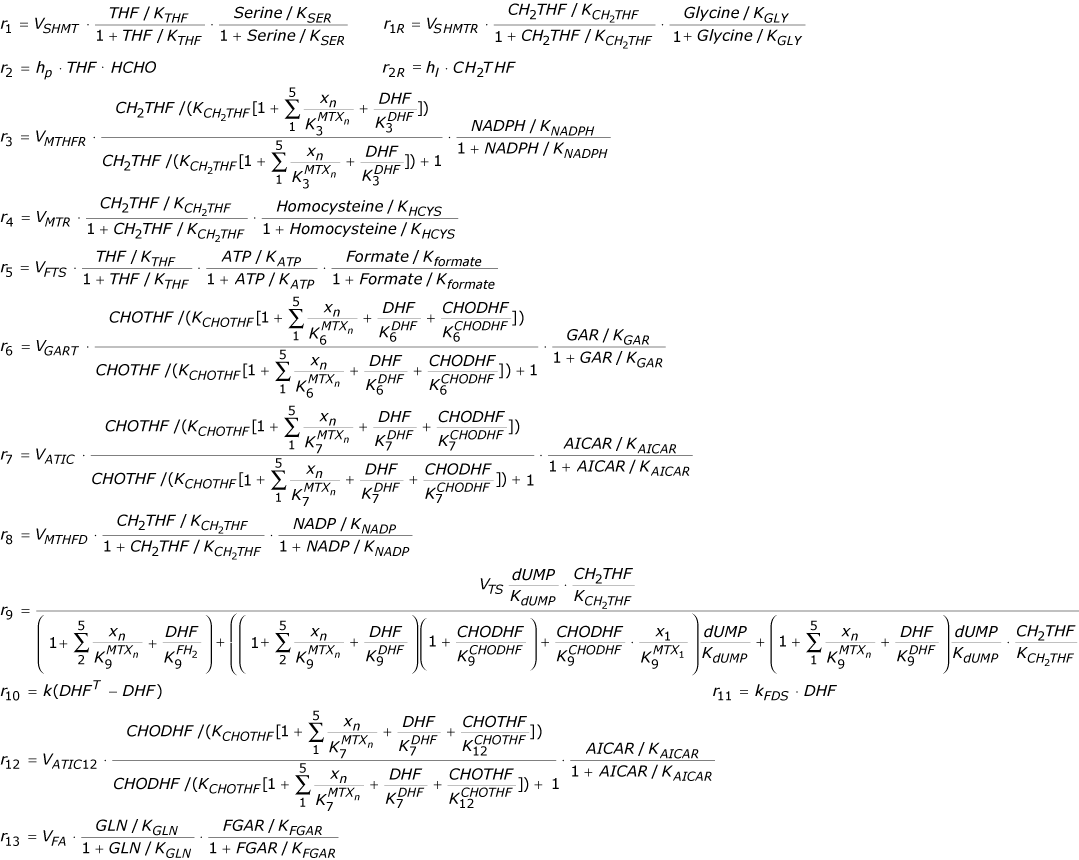 r₁ = V_SHMT · (THF / K_THF)/(1 + THF / K_THF) · (Serine / K_SER)/(1 + Serine / K_SER)    r_1R = V_SHMTR · (CH₂THF / K_CH₂THF)/(1 + CH₂THF / K_CH₂THF) · (Glycine / K_GLY)/(1 + Glycine / K_GLY)
r₂ = h_p · THF · HCHO    r_2R = h_l · CH₂THF
r₃ = V_MTHFR · (CH₂THF /(K_CH₂THF[1 + ∑_1^5 x_n/K_3^MTX_n + DHF/K_3^DHF]))/(CH₂THF /(K_CH₂THF[1 + ∑_1^5 x_n/K_3^MTX_n + DHF/K_3^DHF]) + 1) · (NADPH / K_NADPH)/(1 + NADPH / K_NADPH)
r₄ = V_MTR · (CH₂THF / K_CH₂THF)/(1 + CH₂THF / K_CH₂THF) · (Homocysteine / K_HCYS)/(1 + Homocysteine / K_HCYS)
r₅ = V_FTS · (THF / K_THF)/(1 + THF / K_THF) · (ATP / K_ATP)/(1 + ATP / K_ATP) · (Formate / K_formate)/(1 + Formate / K_formate)
r₆ = V_GART · (CHOTHF /(K_CHOTHF[1 + ∑_1^5 x_n/K_6^MTX_n + DHF/K_6^DHF + CHODHF/K_6^CHODHF]))/(CHOTHF /(K_CHOTHF[1 + ∑_1^5 x_n/K_6^MTX_n + DHF/K_6^DHF + CHODHF/K_6^CHODHF]) + 1) · (GAR / K_GAR)/(1 + GAR / K_GAR)
r₇ = V_ATIC · (CHOTHF /(K_CHOTHF[1 + ∑_1^5 x_n/K_7^MTX_n + DHF/K_7^DHF + CHODHF/K_7^CHODHF]))/(CHOTHF /(K_CHOTHF[1 + ∑_1^5 x_n/K_7^MTX_n + DHF/K_7^DHF + CHODHF/K_7^CHODHF]) + 1) · (AICAR / K_AICAR)/(1 + AICAR / K_AICAR)
r₈ = V_MTHFD · (CH₂THF / K_CH₂THF)/(1 + CH₂THF / K_CH₂THF) · (NADP / K_NADP)/(1 + NADP / K_NADP)
r₉ = (V_TS dUMP/K_dUMP · CH₂THF/K_CH₂THF)/((1 + ∑_2^5 x_n/K_9^MTX_n + DHF/K_9^FH₂) + ((1 + ∑_2^5 x_n/K_9^MTX_n + DHF/K_9^DHF)(1 + CHODHF/K_9^CHODHF) + CHODHF/K_9^CHODHF · x₁/K_9^MTX₁) dUMP/K_dUMP + (1 + ∑_1^5 x_n/K_9^MTX_n + DHF/K_9^DHF) dUMP/K_dUMP · CH₂THF/K_CH₂THF
r₁₀ = k(DHF^T − DHF)    r₁₁ = k_FDS · DHF
r₁₂ = V_ATIC12 · (CHODHF /(K_CHOTHF[1 + ∑_1^5 x_n/K_7^MTX_n + DHF/K_7^DHF + CHOTHF/K_12^CHOTHF]))/(CHODHF /(K_CHOTHF[1 + ∑_1^5 x_n/K_7^MTX_n + DHF/K_7^DHF + CHOTHF/K_12^CHOTHF]) + 1) · (AICAR / K_AICAR)/(1 + AICAR / K_AICAR)
r₁₃ = V_FA · (GLN / K_GLN)/(1 + GLN / K_GLN) · (FGAR / K_FGAR)/(1 + FGAR / K_FGAR)